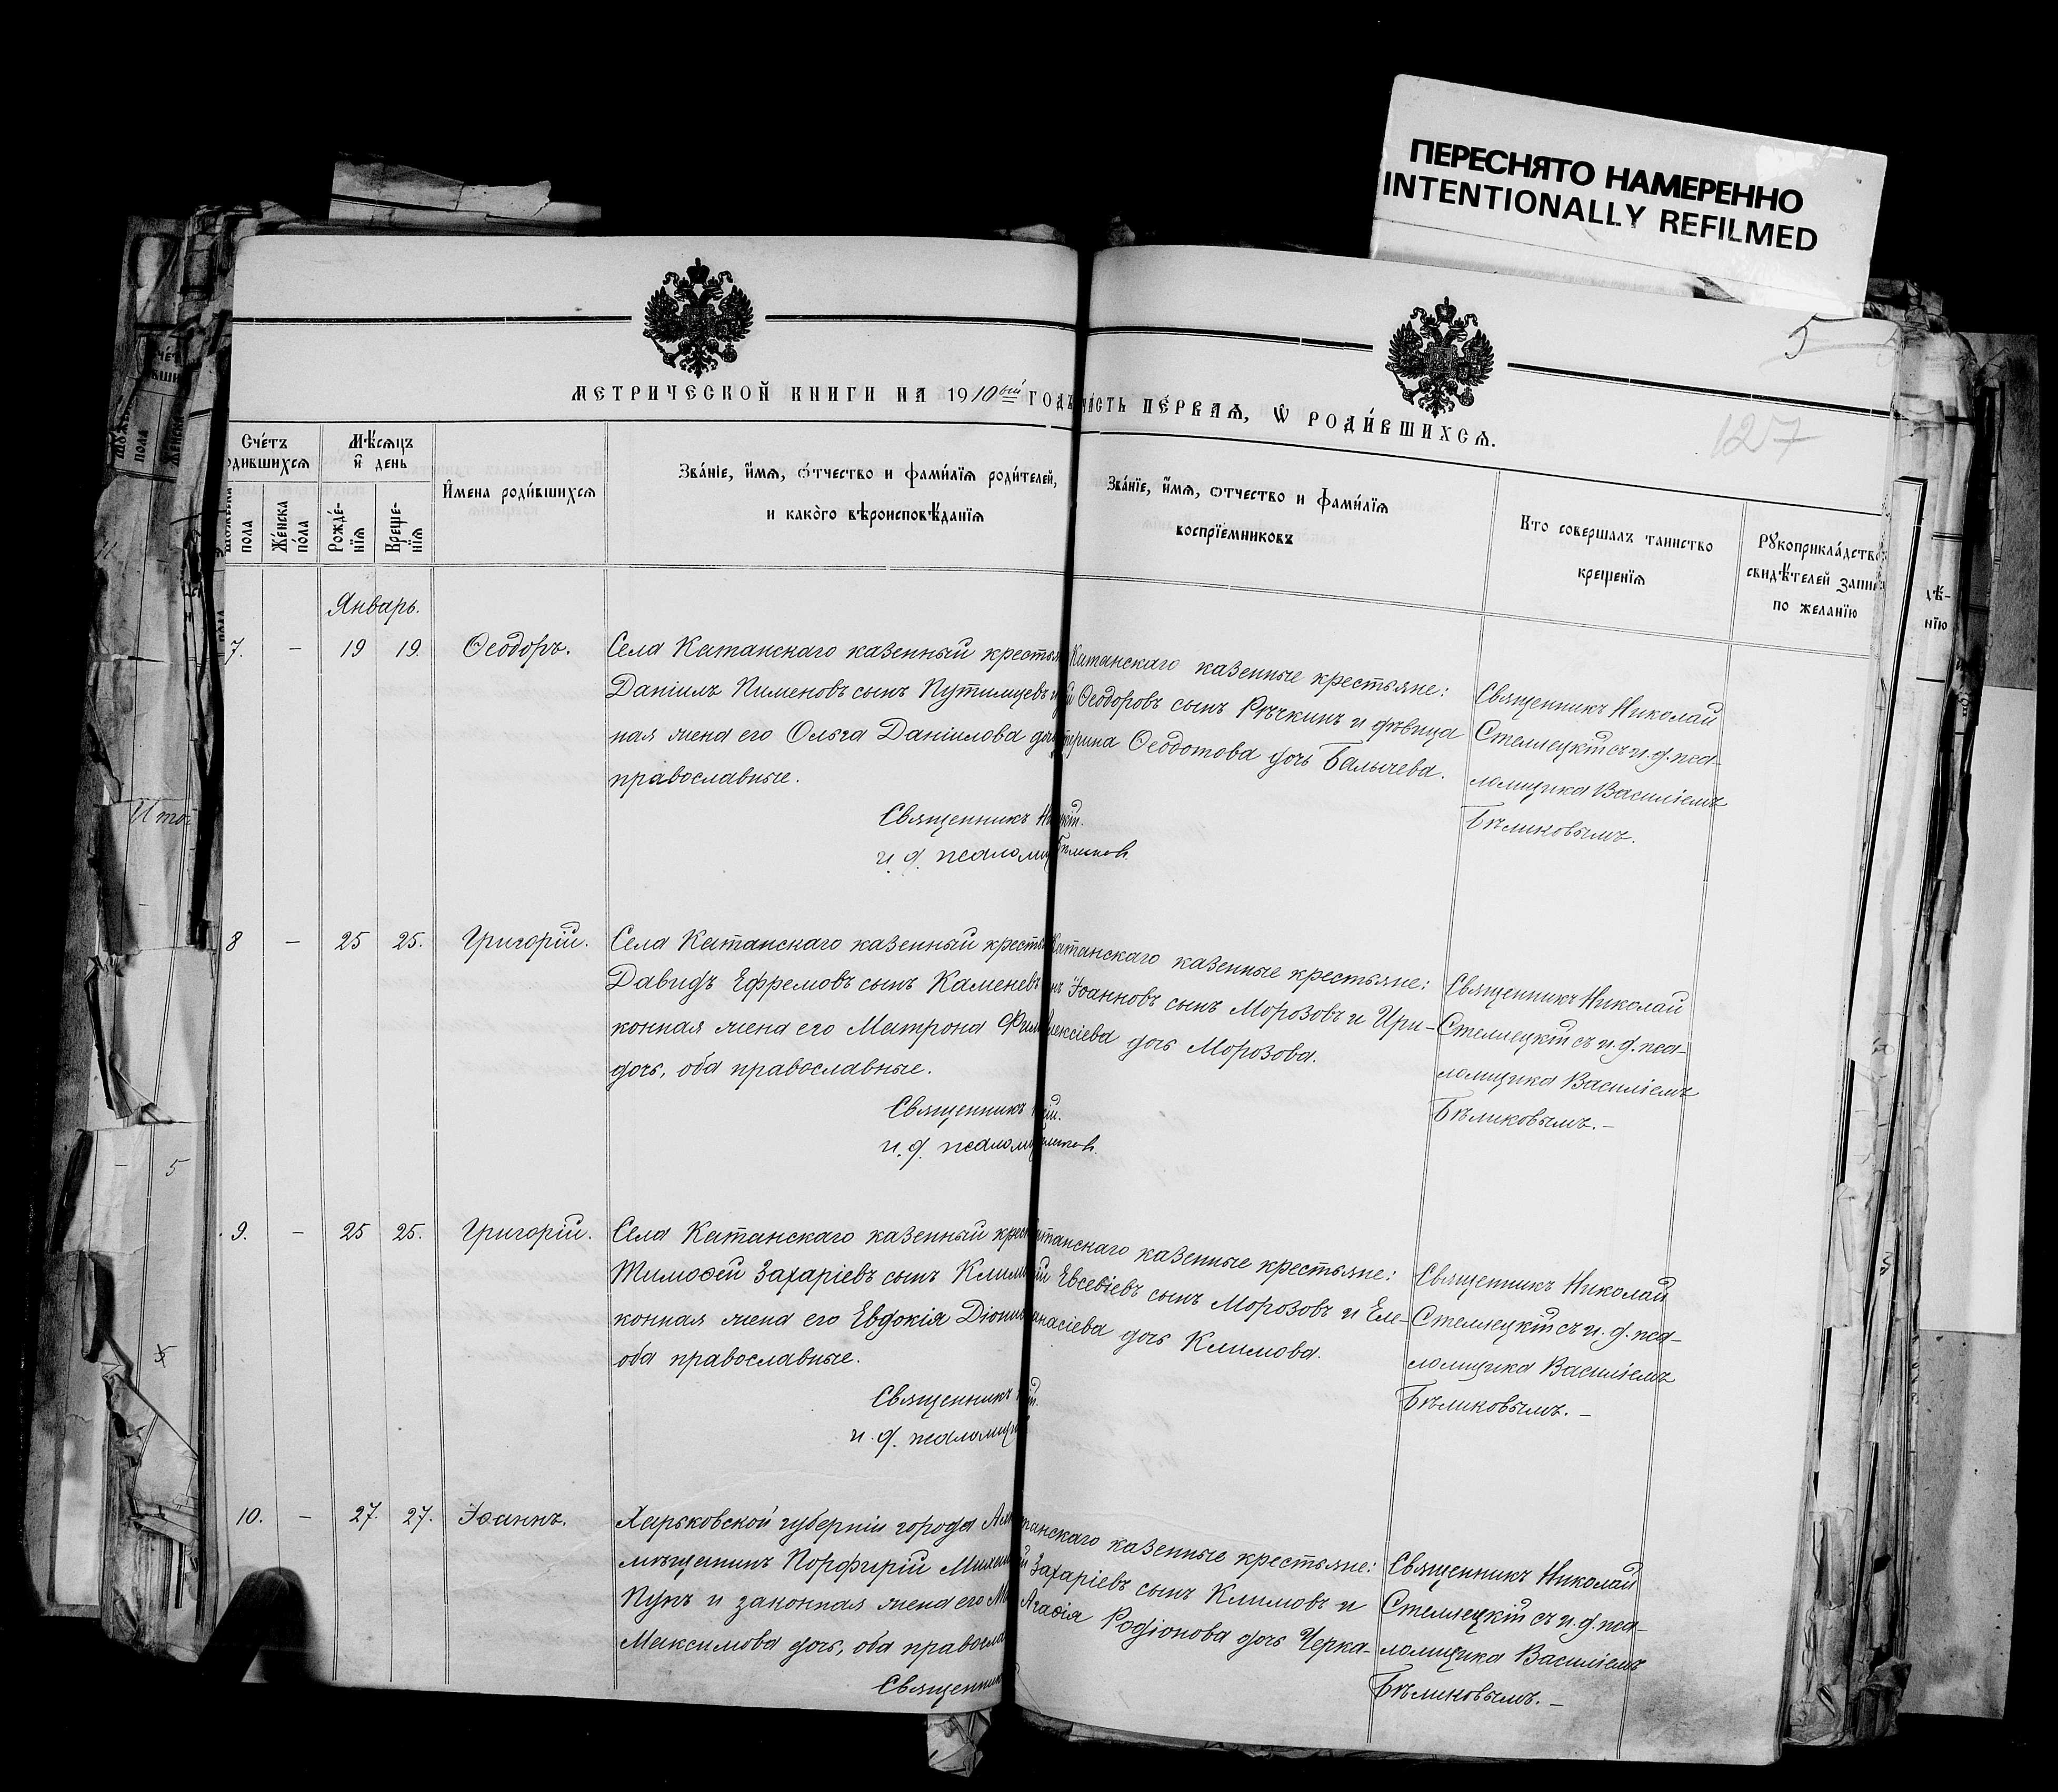 ПЕРЕСНЯТО НАМЕРЕННО
INTENTIONALLY REFILMED
5
127
МЕТРИЧЕСКОЙ КНИГИ НА 1910ый ГОДЪ ЧАСТЬ ПЕ́РВАѦ, Ѡ РОДИ́ВШИХСѦ.
Сче́тъ
одившихсѧ
Мѣсѧцъ
и день
пола
Же́нска
по́ла
Рожде́-
нїѧ
Креще-
нїѧ
Имена роди́вшихсѧ
Зва́нїе, и́мѧ, ѻ́тчество и фами́лїѧ роди́телей,
и како́го вѣроисповѣ́данїѧ
Зва́нїе, и́мѧ, ѻтчество и фами́лїѧ
воспрїе́мниковъ
Кто совершалъ таинство
крещенїѧ
Рꙋкоприкла́дство
свидѣ́телей записи
по желанїю
Январь.
7. – 19 19. Ѳеодоръ.
Села Катанскаго казенный крестья
Даніилъ Пименовъ сынъ Путилцевъ и
ная жена его Ольга Даніилова доч
православные.
Священникъ Ни
и. д. псалом
Катанскаго казенные крестьяне:
Ѳеодоровъ сынъ Рѣчкинъ и дѣвица
Ѳеодотова дочь Балычева.
Священникъ Николай
Стеллецкій съ и. д. пса-
ломщика Василіемъ
Бѣликовымъ.
8 – 25 25. Григорій.
Села Катанскаго казенный кресть
Давидъ Ефремовъ сынъ Каменевъ
конная жена его Матрона
дочь, оба православные.
Священникъ
и. д. псалом
Катанскаго казенные крестьяне:
Іоанновъ сынъ Морозовъ и Ири-
лексіева дочь Морозова.
Священникъ Николай
Стеллецкій съ и. д. пса-
ломщика Василіемъ
Бѣликовымъ. –
9. – 25 25. Григорій.
Села Катанскаго казенный крес
Тимоѳей Захаріевъ сынъ Клим
конная жена его Евдокія Діони
оба православные.
Священникъ
и. д. псаломщ
танскаго казенные крестьяне:
Евсевіевъ сынъ Морозовъ и Еле-
анасіева дочь Климова.
Священникъ Николай
Стеллецкій съ и. д. пса-
ломщика Василіемъ
Бѣликовымъ. –
10. – 27. 27. Іоаннъ.
Харьковской губерніи города
мѣщанинъ Порфирій Миха
Пупъ и законная жена его
Максимова дочь, оба правосла
Священник
танскаго казенные крестьяне:
Захаріевъ сынъ Климовъ и
Агаѳія Родіонова дочь Черка-
Священникъ Николай
Стеллецкій съ и. д. пса-
ломщика Василіемъ
Бѣликовымъ. –